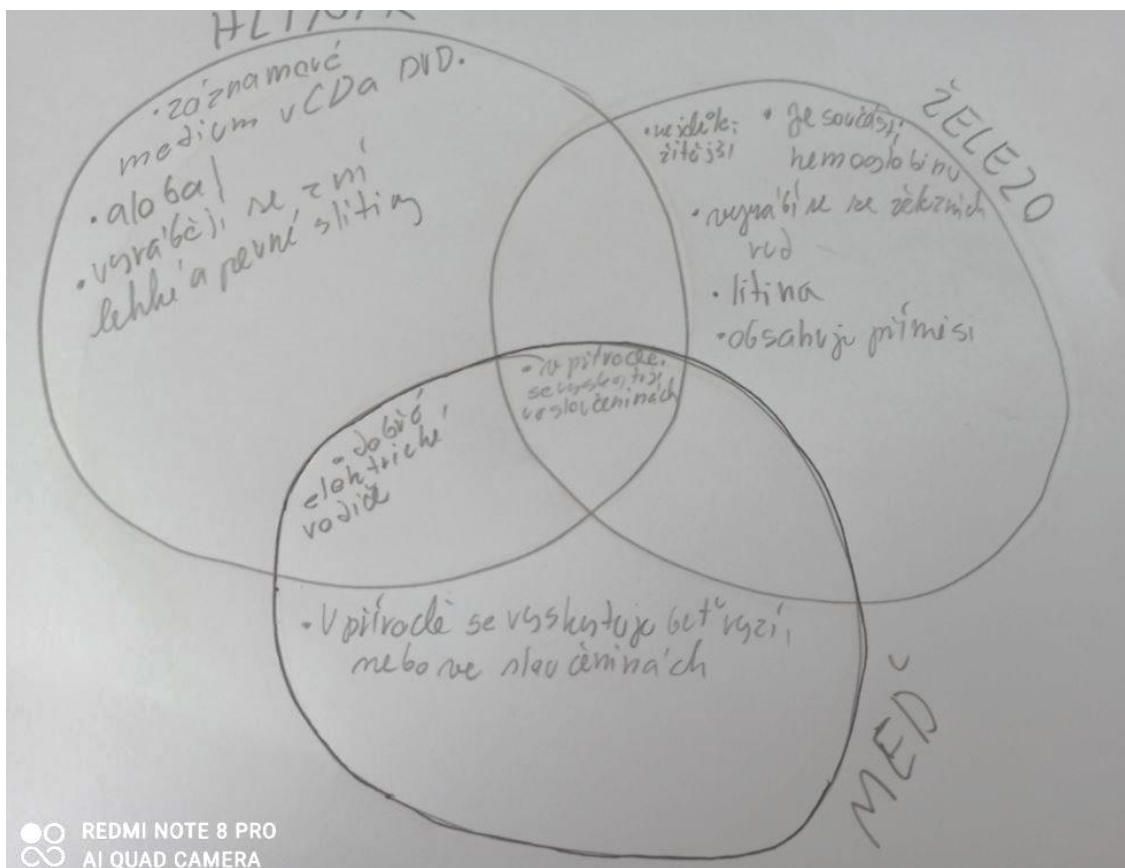 HLINÍK
• záznamové
medium v CD a DVD.
• alobal
• vyrábějí se z ní
lehké a pevné slitiny
ŽELEZO
• nejdůle-
žitější
• je součástí
hemoglobinu
• vyrábí se ze železných
rud
• litina
• obsahuje příměsi
• v přírodě
se vyskytují
ve sloučeninách
• dobré
elektrické
vodiče
• V přírodě se vyskytuje buť ryzí,
nebo ve sloučeninách
MEĎ
REDMI NOTE 8 PRO
AI QUAD CAMERA